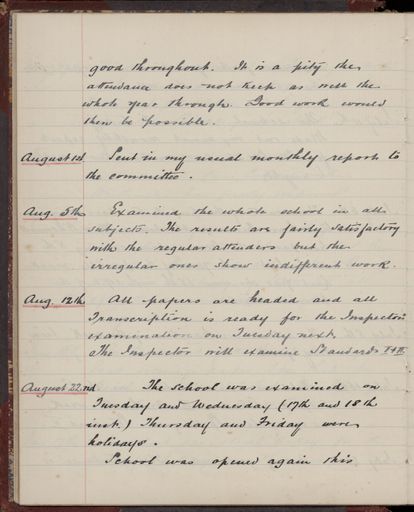 good throughout. It is a pity the
attendance does not keep as near the
whole year through. Good work would
then be possible.
August 1st Sent in my usual monthly report to
the committee.
Aug. 5th Examined the whole school in all
subjects. The results are fairly satisfactory
with the regular attenders but the
irregular ones show indifferent work.
Aug. 12th All papers are headed and all
Transcription is ready for the Inspector's
examination on Tuesday next.
The Inspector will examine Standards I & II
August 22nd The school was examined on
Tuesday and Wednesday (17th and 18th
inst.) Thursday and Friday were
holidays.
School was opened again this